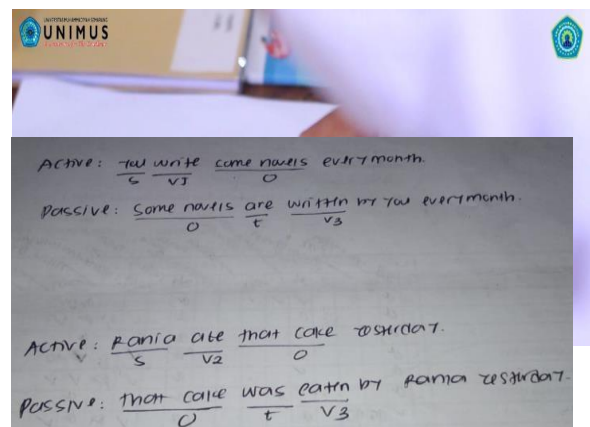 UNIMUS
Active: You write come novels every month.
S V1 O
Passive: Some novels are written by you every month.
O t V3
Active: Rania ate that cake yesterday.
S V2 O
Passive: that cake was eaten by Rania yesterday.
O t V3